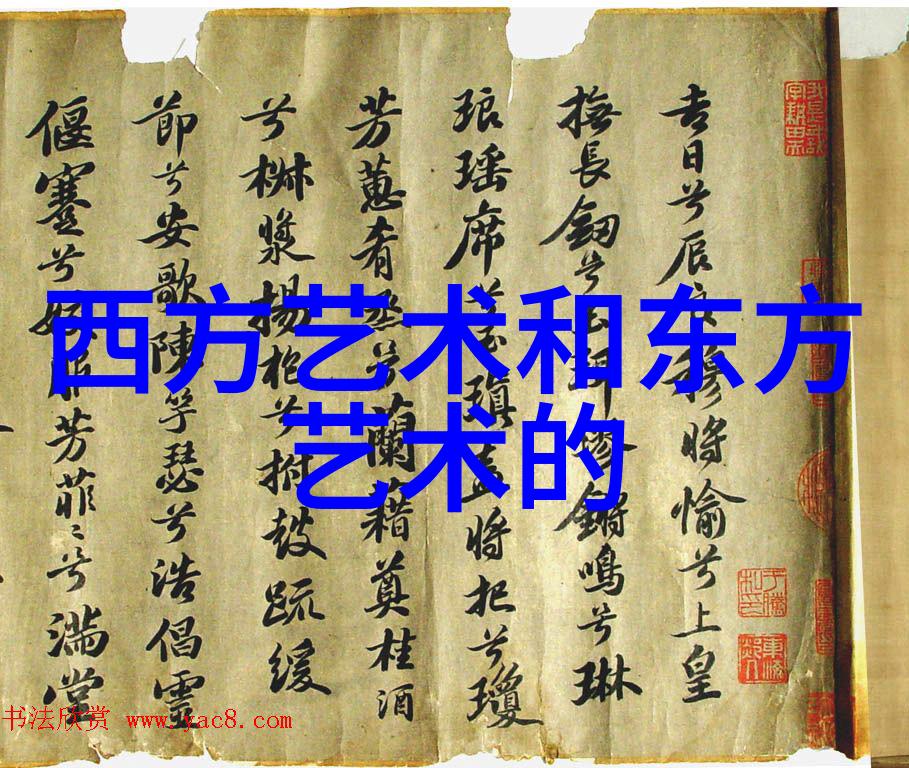 西方艺术和东方
艺术的
吉日兮辰良穆將愉兮上皇
撫長釼兮玉珥璆鏘鳴兮琳
琅瑶席兮玉瑱盍將把兮瓊
芳蕙肴烝兮蘭藉奠桂酒
兮椒漿揚枹兮拊鼓疏緩
節兮安歌陳竽瑟兮浩倡靈
偃蹇兮姣服芳菲〻兮滿堂
书法欣赏 www.yac8.com